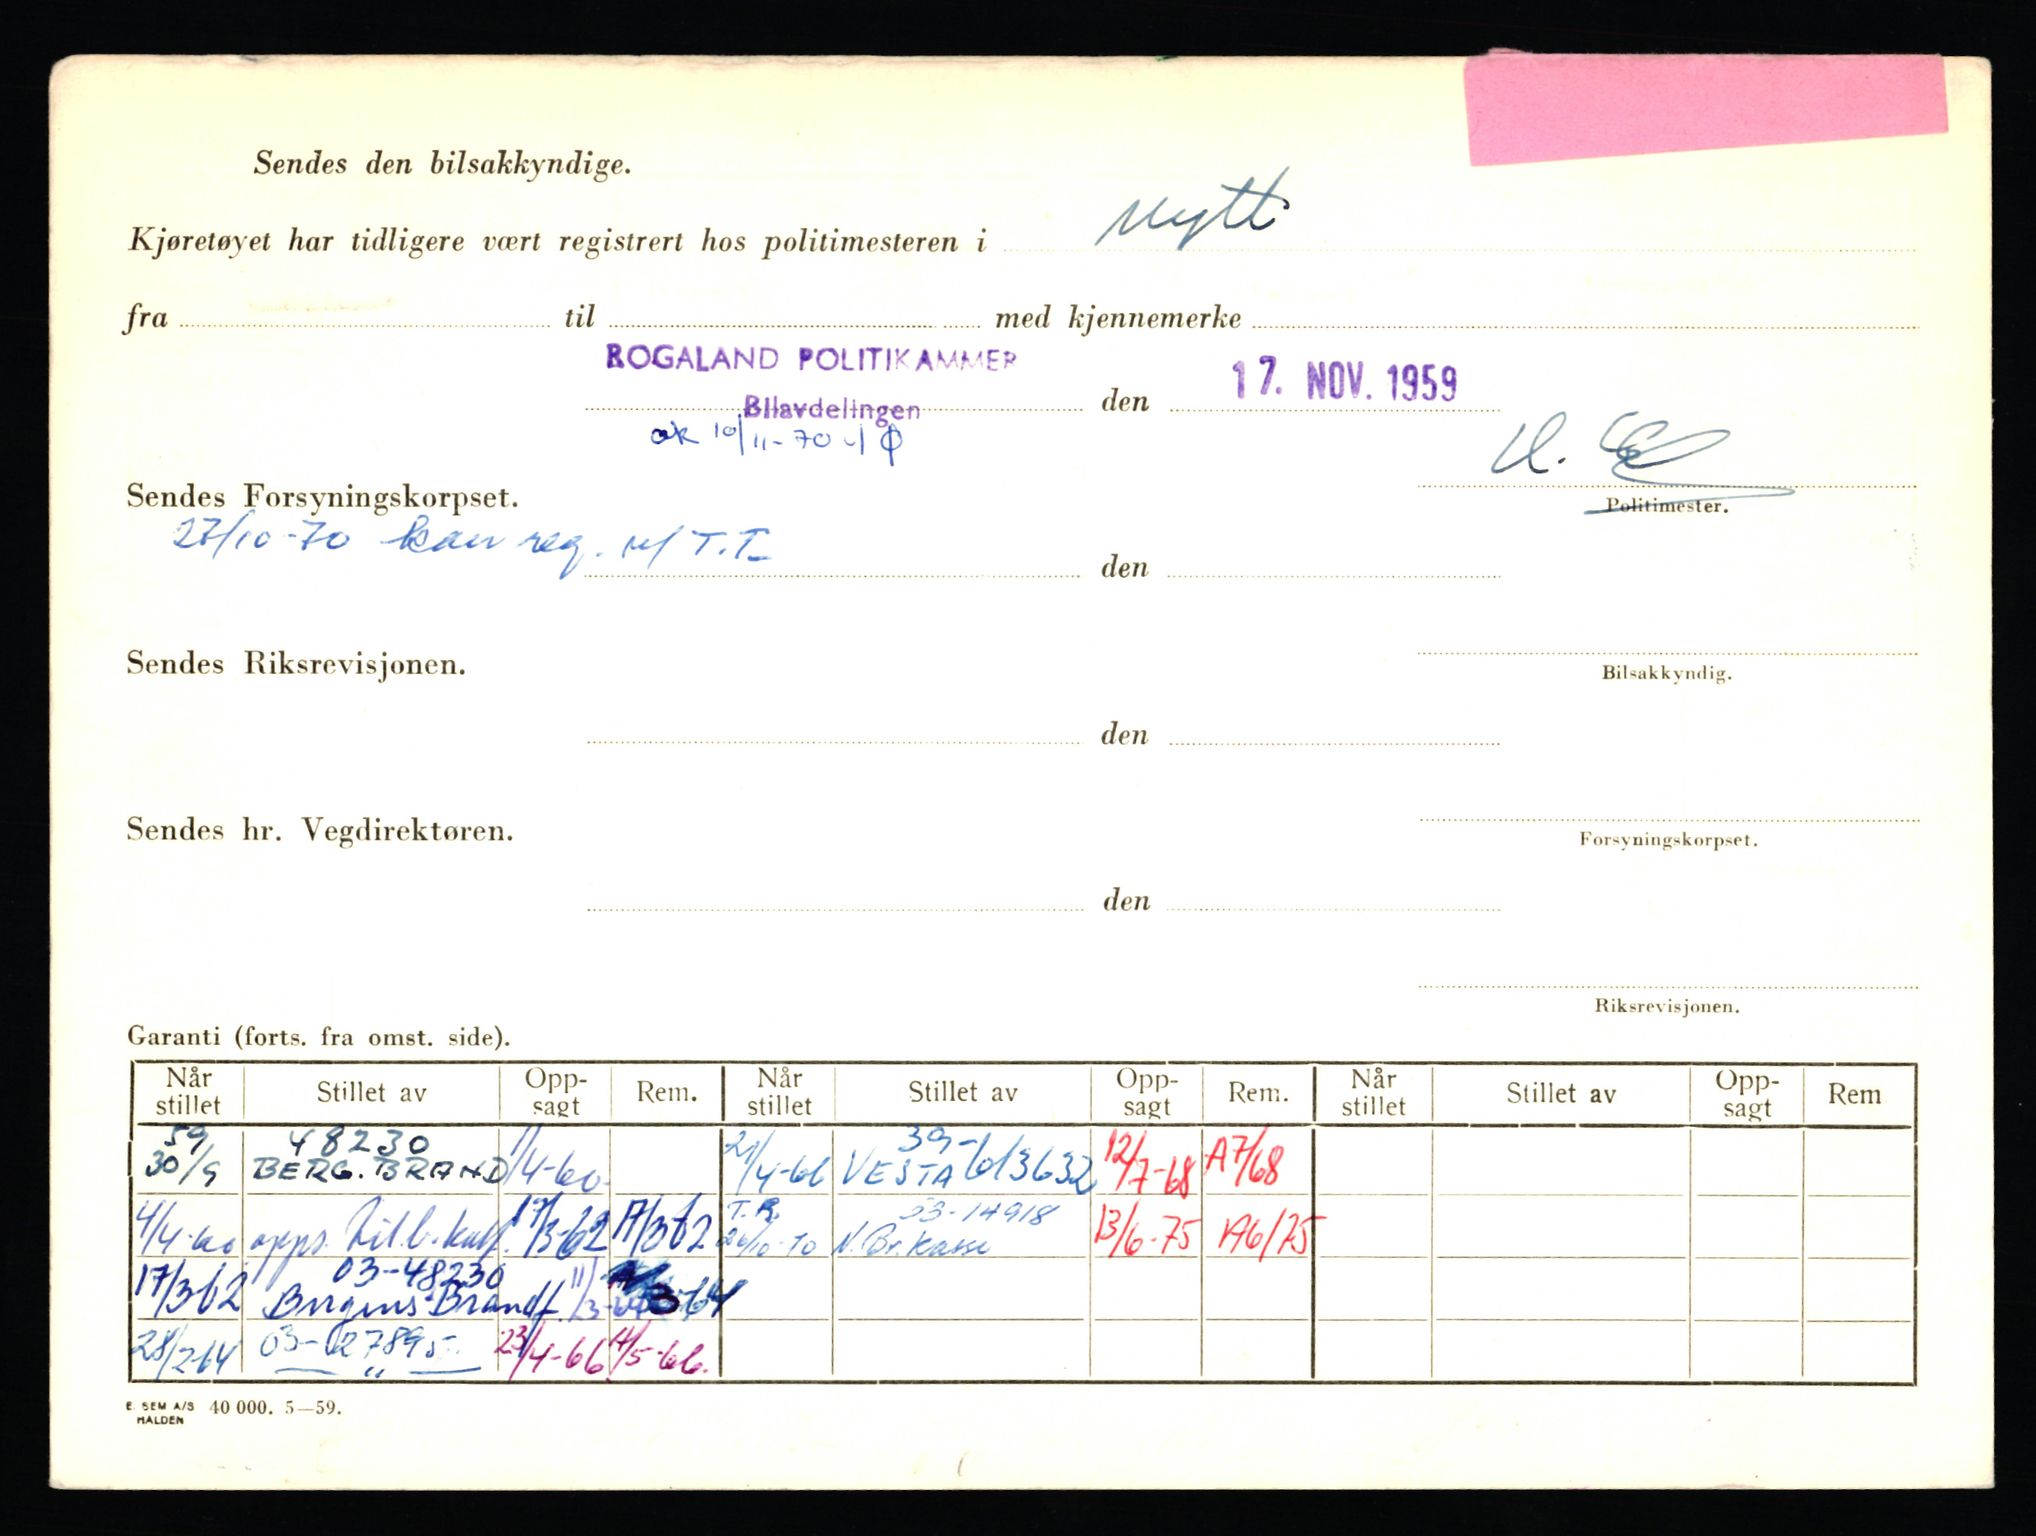 Sendes den bilsakkyndige.
Kjøretøyet har tidligere vært registrert hos politimesteren i nytt
fra til med kjennemerke
ROGALAND POLITIKAMMER
Bilavdelingen den 17. NOV. 1959
ok 10/11-70
Sendes Forsyningskorpset.
Politimester.
27/10-70 kan reg. T.T.
den
Sendes Riksrevisjonen.
Bilsakkyndig.
den
Sendes hr. Vegdirektøren.
Forsyningskorpset.
den
Riksrevisjonen.
Garanti (forts. fra omst. side).
Når stillet Stillet av Opp-sagt Rem. Når stillet Stillet av Opp-sagt Rem. Når stillet Stillet av Opp-sagt Rem
59 30/9 48230 BERG. BRAND 1/4-60 21/4-66 39-613632 VESTA 12/7-68 A7/68
4/4-60 opps. 17/3-62 17/3 62 T.R. 26/10-70 53-14918 N. Br. kasse 13/6-75 A6/75
17/3 62 03-48230 Bergens Brandf. 11/3-64
28/2-64 03-127895 — " — 23/4-66 4/5-66.
E. SEM A/S HALDEN 40 000. 5—59.